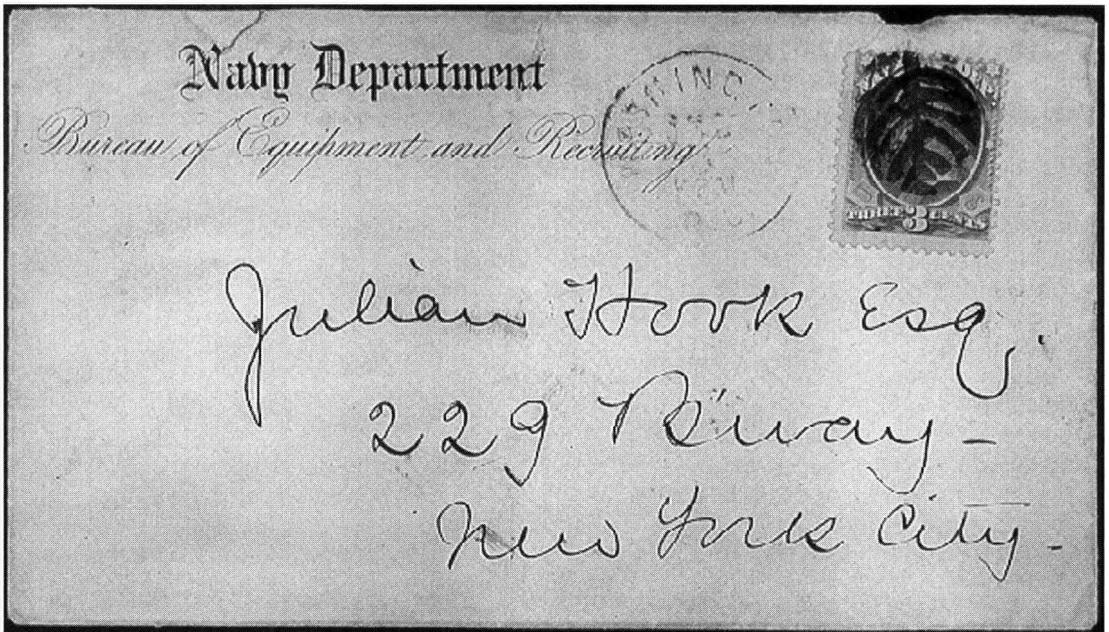 Navy Department
Bureau of Equipment and Recruiting
WASHINGTON
D.C.
THREE 3 CENTS
Julian Hook Esq.
229 B'way -
New York City.